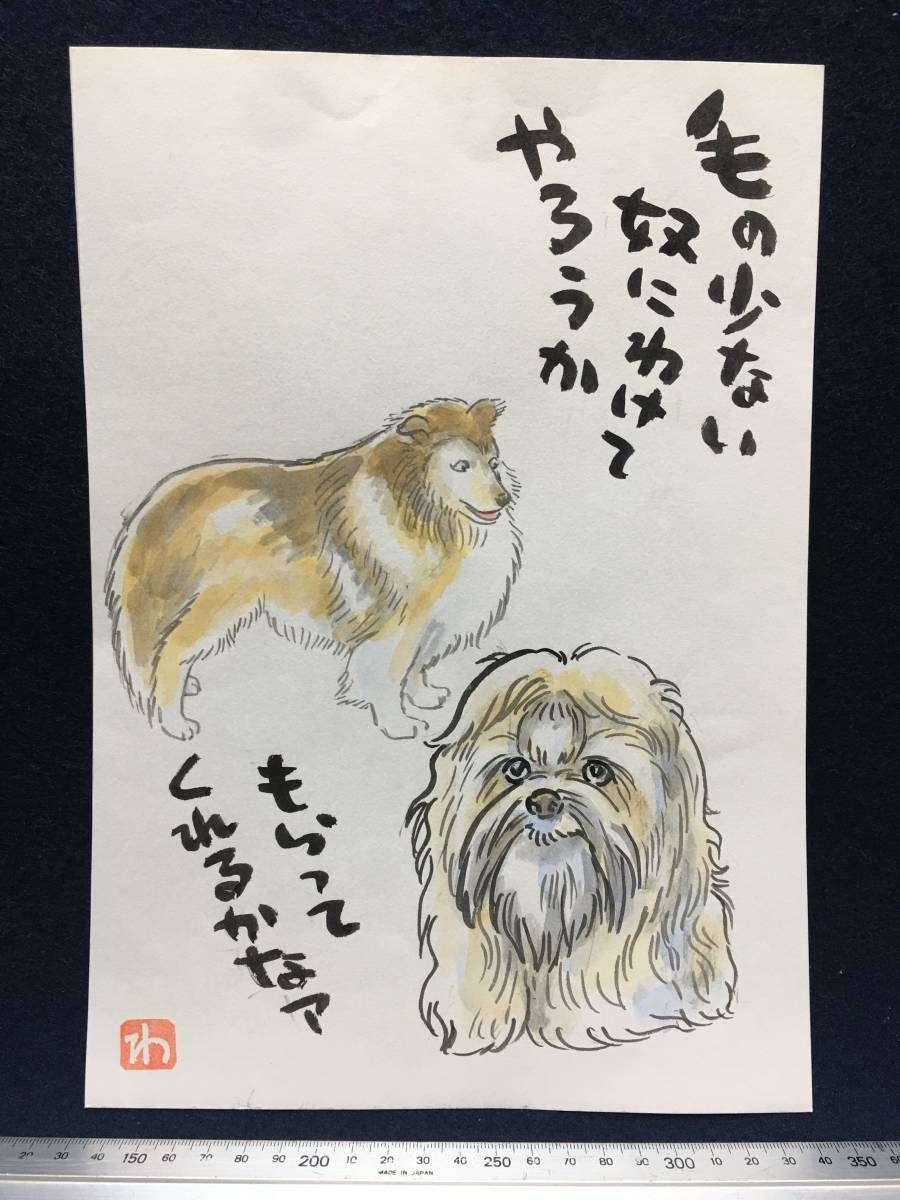 毛の少ない
奴にわけて
やろうか
もらって
くれるかなァ
わ
20 30 40 150 60 70 80 90 200 10 20 30 40 250 60 70 80 90 300 10 20 30 40 350 60
MADE IN JAPAN